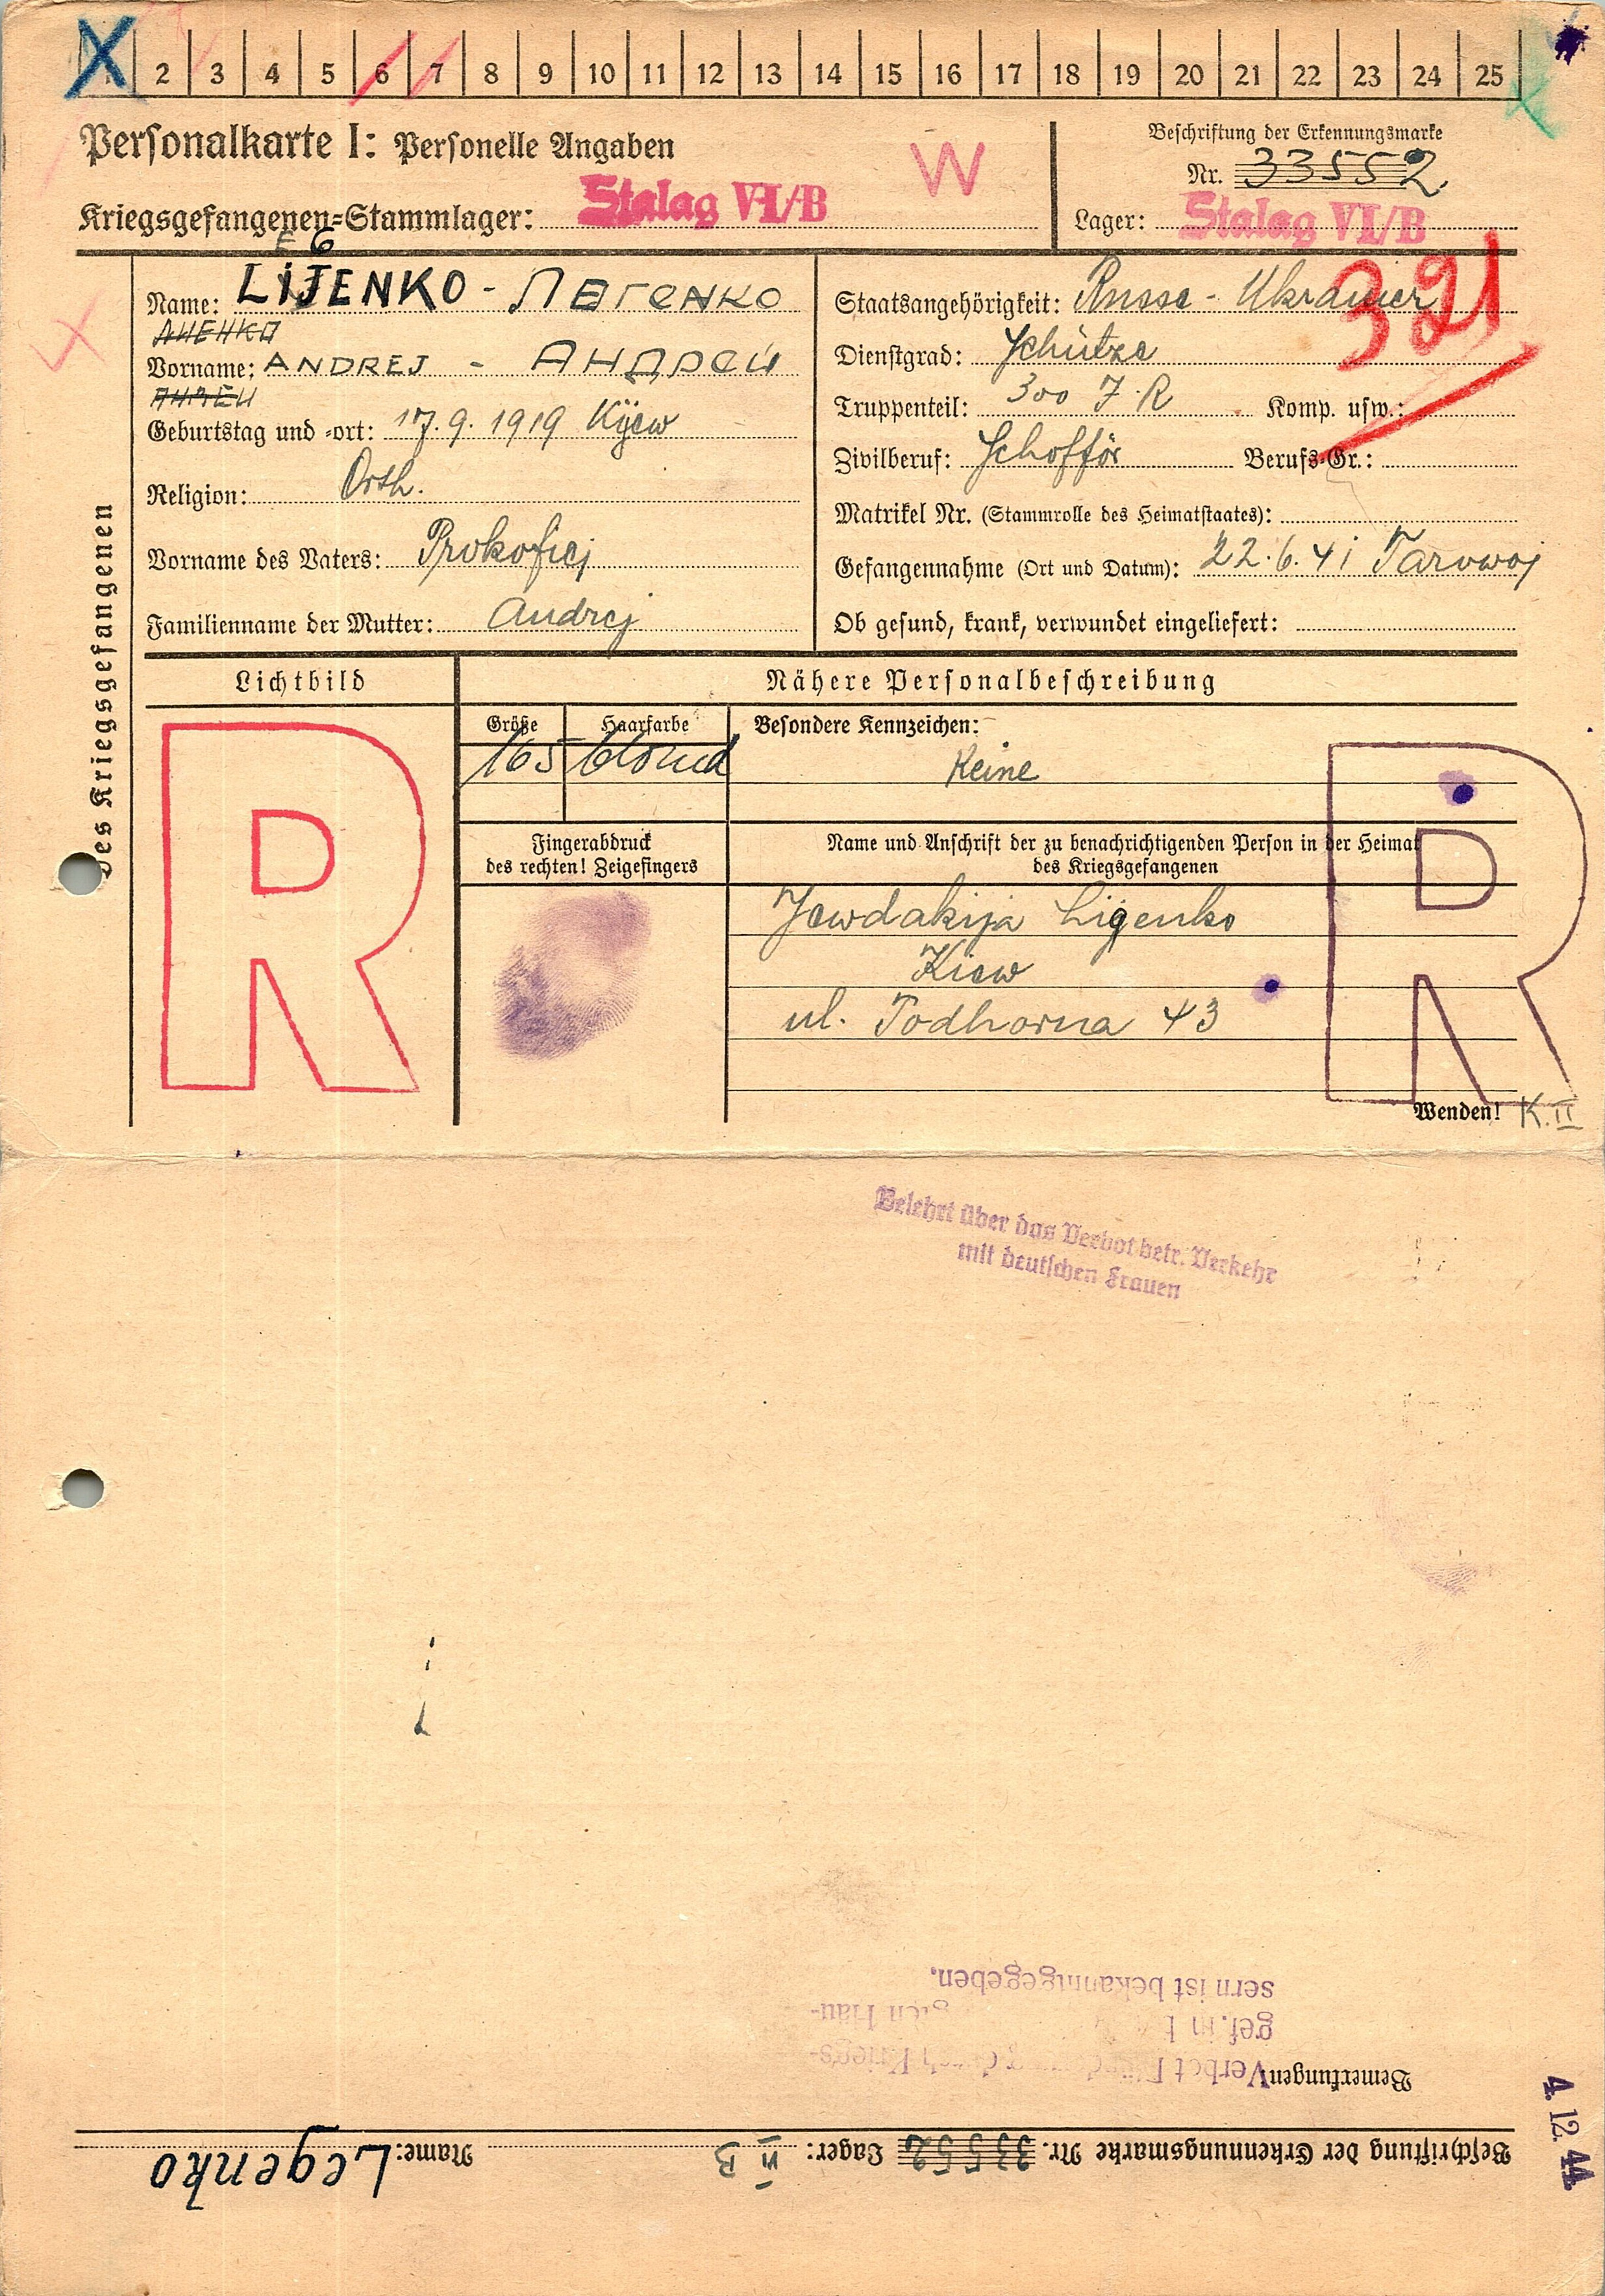 X 2 3 4 5 6 7 8 9 10 11 12 13 14 15 16 17 18 19 20 21 22 23 24 25
Personalkarte I: Personelle Angaben
W
Kriegsgefangenen-Stammlager: Stalag VI/B
Beschriftung der Erkennungsmarke
Nr. 33552
Lager: Stalag VI/B
321
des Kriegsgefangenen
E G
Name: LIJENKO - ЛЕГЕНКО
Vorname: ANDREJ - АНДРЕЙ
Geburtstag und -ort: 17.9.1919 Kijew
Religion: Orth.
Vorname des Vaters: Prokofiej
Familienname der Mutter: Andrej
Staatsangehörigkeit: Russe - Ukrainer
Dienstgrad: Schütze
Truppenteil: 300 J.R Komp. usw.:
Zivilberuf: Schofför Berufs-Gr.:
Matrikel Nr. (Stammrolle des Heimatstaates):
Gefangennahme (Ort und Datum): 22.6.41 Tarowoj
Ob gesund, krank, verwundet eingeliefert:
Lichtbild
R
Nähere Personalbeschreibung
Größe Haarfarbe Besondere Kennzeichen:
165 blond Keine
Fingerabdruck
des rechten! Zeigefingers
Name und Anschrift der zu benachrichtigenden Person in der Heimat
des Kriegsgefangenen
Jewdakija Ligenko
Kiew
ul. Podhorna 43
R
Wenden! K. II
Belehrt über das Verbot betr. Verkehr
mit deutschen Frauen
sern ist bekanntgegeben.
gef. in
Bemerkungen Verbot
4. 12. 44.
Beschriftung der Erkennungsmarke Nr. 33552 Lager: VI B Name: Legenko